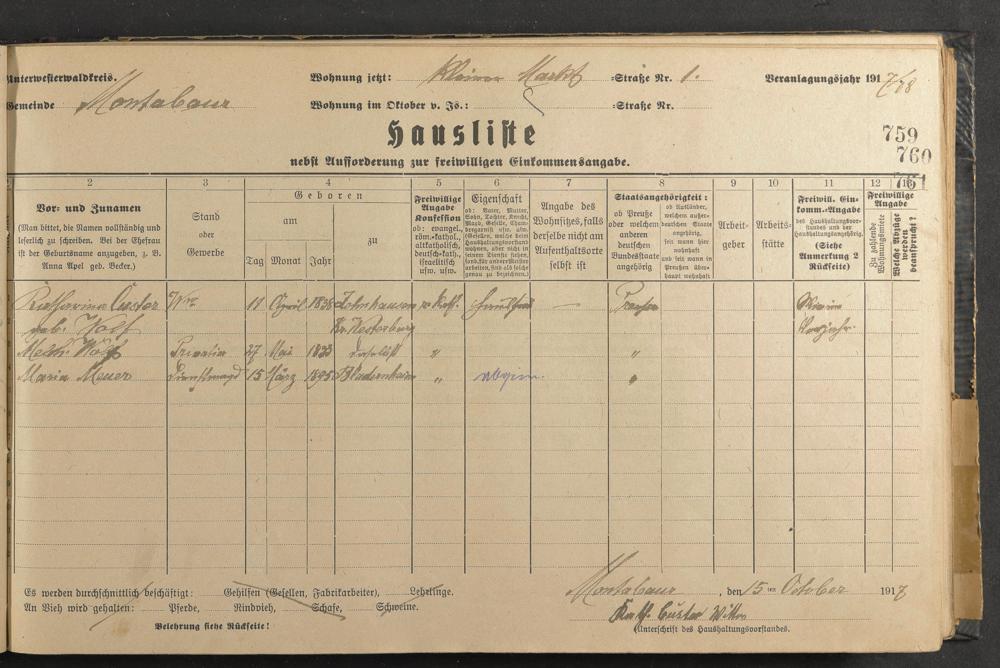 Unterwesterwaldkreis. Wohnung jetzt: Kleiner Markt =Straße Nr. 1. Veranlagungsjahr 1917/18
Gemeinde Montabaur Wohnung im Oktober v. Js.: =Straße Nr.
Hausliste 759
nebst Aufforderung zur freiwilligen Einkommensangabe. 760
761
2 3 4 5 6 7 8 9 10 11 12 13
Vor- und Zunamen
(Man bittet, die Namen vollständig und
leserlich zu schreiben. Bei der Ehefrau
ist der Geburtsname anzugeben, z. B.
Anna Apel geb. Becker.)
Stand
oder
Gewerbe
Geboren
am
zu
Tag Monat Jahr
Freiwillige
Angabe
Konfession
ob: evangel.,
röm.-kathol.,
altkatholisch,
deutsch-kath.,
israelitisch
usw. usw.
Eigenschaft
ob: Vater, Mutter,
Sohn, Tochter, Knecht,
Magd, Geselle,
Angabe des
Wohnsitzes, falls
derselbe nicht am
Aufenthaltsorte
selbst ist
Staatsangehörigkeit:
ob Preuße
oder welchem
anderen
deutschen
Bundesstaate
angehörig
ob Ausländer,
welchem außer-
deutschen Staate
angehörig,
seit wann hier
wohnhaft
und seit wann in
Preußen über-
haupt wohnhaft
Arbeit-
geber
Arbeits-
stätte
Freiwill. Ein-
komm.-Angabe
des Haushaltungsvor-
standes und der
Haushaltungsangehörig.
(Siehe
Anmerkung 2
Rückseite)
Freiwillige
Angabe
Zu zahlende
Wohnungsmiete
Welche Abzüge
werden
beansprucht?
Katharina Custor Wwe 11 April 1838 r. kath. Haush. — Preuße Wie im
geb. Wolf Kr. Westerburg Vorjahr.
Melch. Wolf Privatier 27 Mai 1833 daselbst " "
Maria Meuer Dienstmagd 15 März 1895 " abgem. "
Es werden durchschnittlich beschäftigt: Gehilfen (Gesellen, Fabrikarbeiter), Lehrlinge.
An Vieh wird gehalten: Pferde, Rindvieh, Schafe, Schweine.
Belehrung siehe Rückseite!
Montabaur, den 15 ten October 1917
Kath. Custor Witwe
(Unterschrift des Haushaltungsvorstandes.